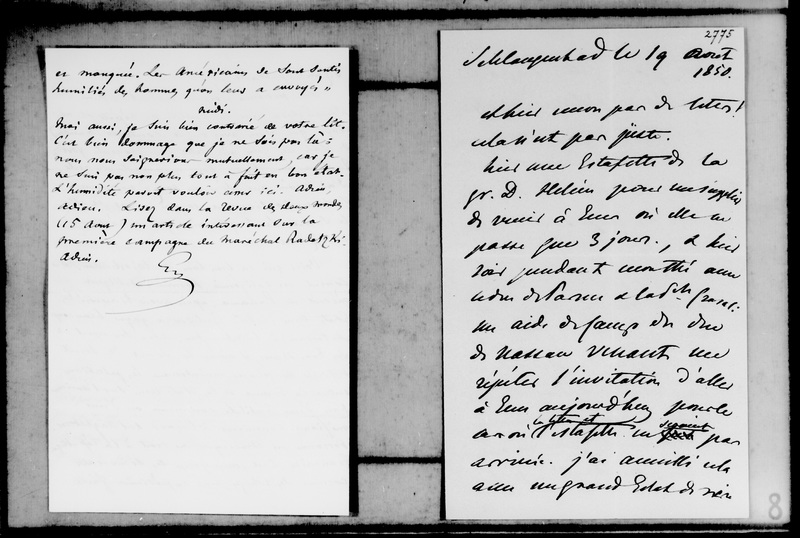 est manquée. Les Américains se sont sentis
humiliés des hommes qu'on leur a envoyés »
midi.
Moi aussi, je suis bien contrarié de votre lit.
C'est bien dommage que je ne sois pas là :
nous nous soignerions mutuellement, car je
ne suis pas non plus tout à fait en bon état.
L'humidité paroit vouloir cesser ici. Adieu,
adieu. Lisez dans la revue des deux mondes
(15 Aout) un article intéressant sur la
première campagne du Maréchal Radetzki.
Adieu.
2775
Schlangenbad le 19 Aout
1850.
et hier encore pas de lettres !
cela n'est pas juste.
hier une Estafette de la
gr. D. Hélène pour me supplier
de venir à Ems où elle ne
passe que 3 jours, et hier
soir pendant mon thé avec
un aide de camp du duc
de Nassau venant me
répéter l'invitation d'aller
à Ems aujourd'hui
l'Estafette pas
arrivée. j'ai accueilli cela
avec un grand Eclat de rire
8